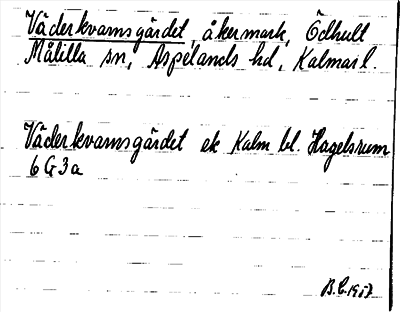 Väderkvarnsgärdet, åkermark, Ödhult
Målilla sn, Aspelands hd, Kalmar l.
Väderkvarnsgärdet ek Kalm bl. Hagelsrum
6 G 3 a